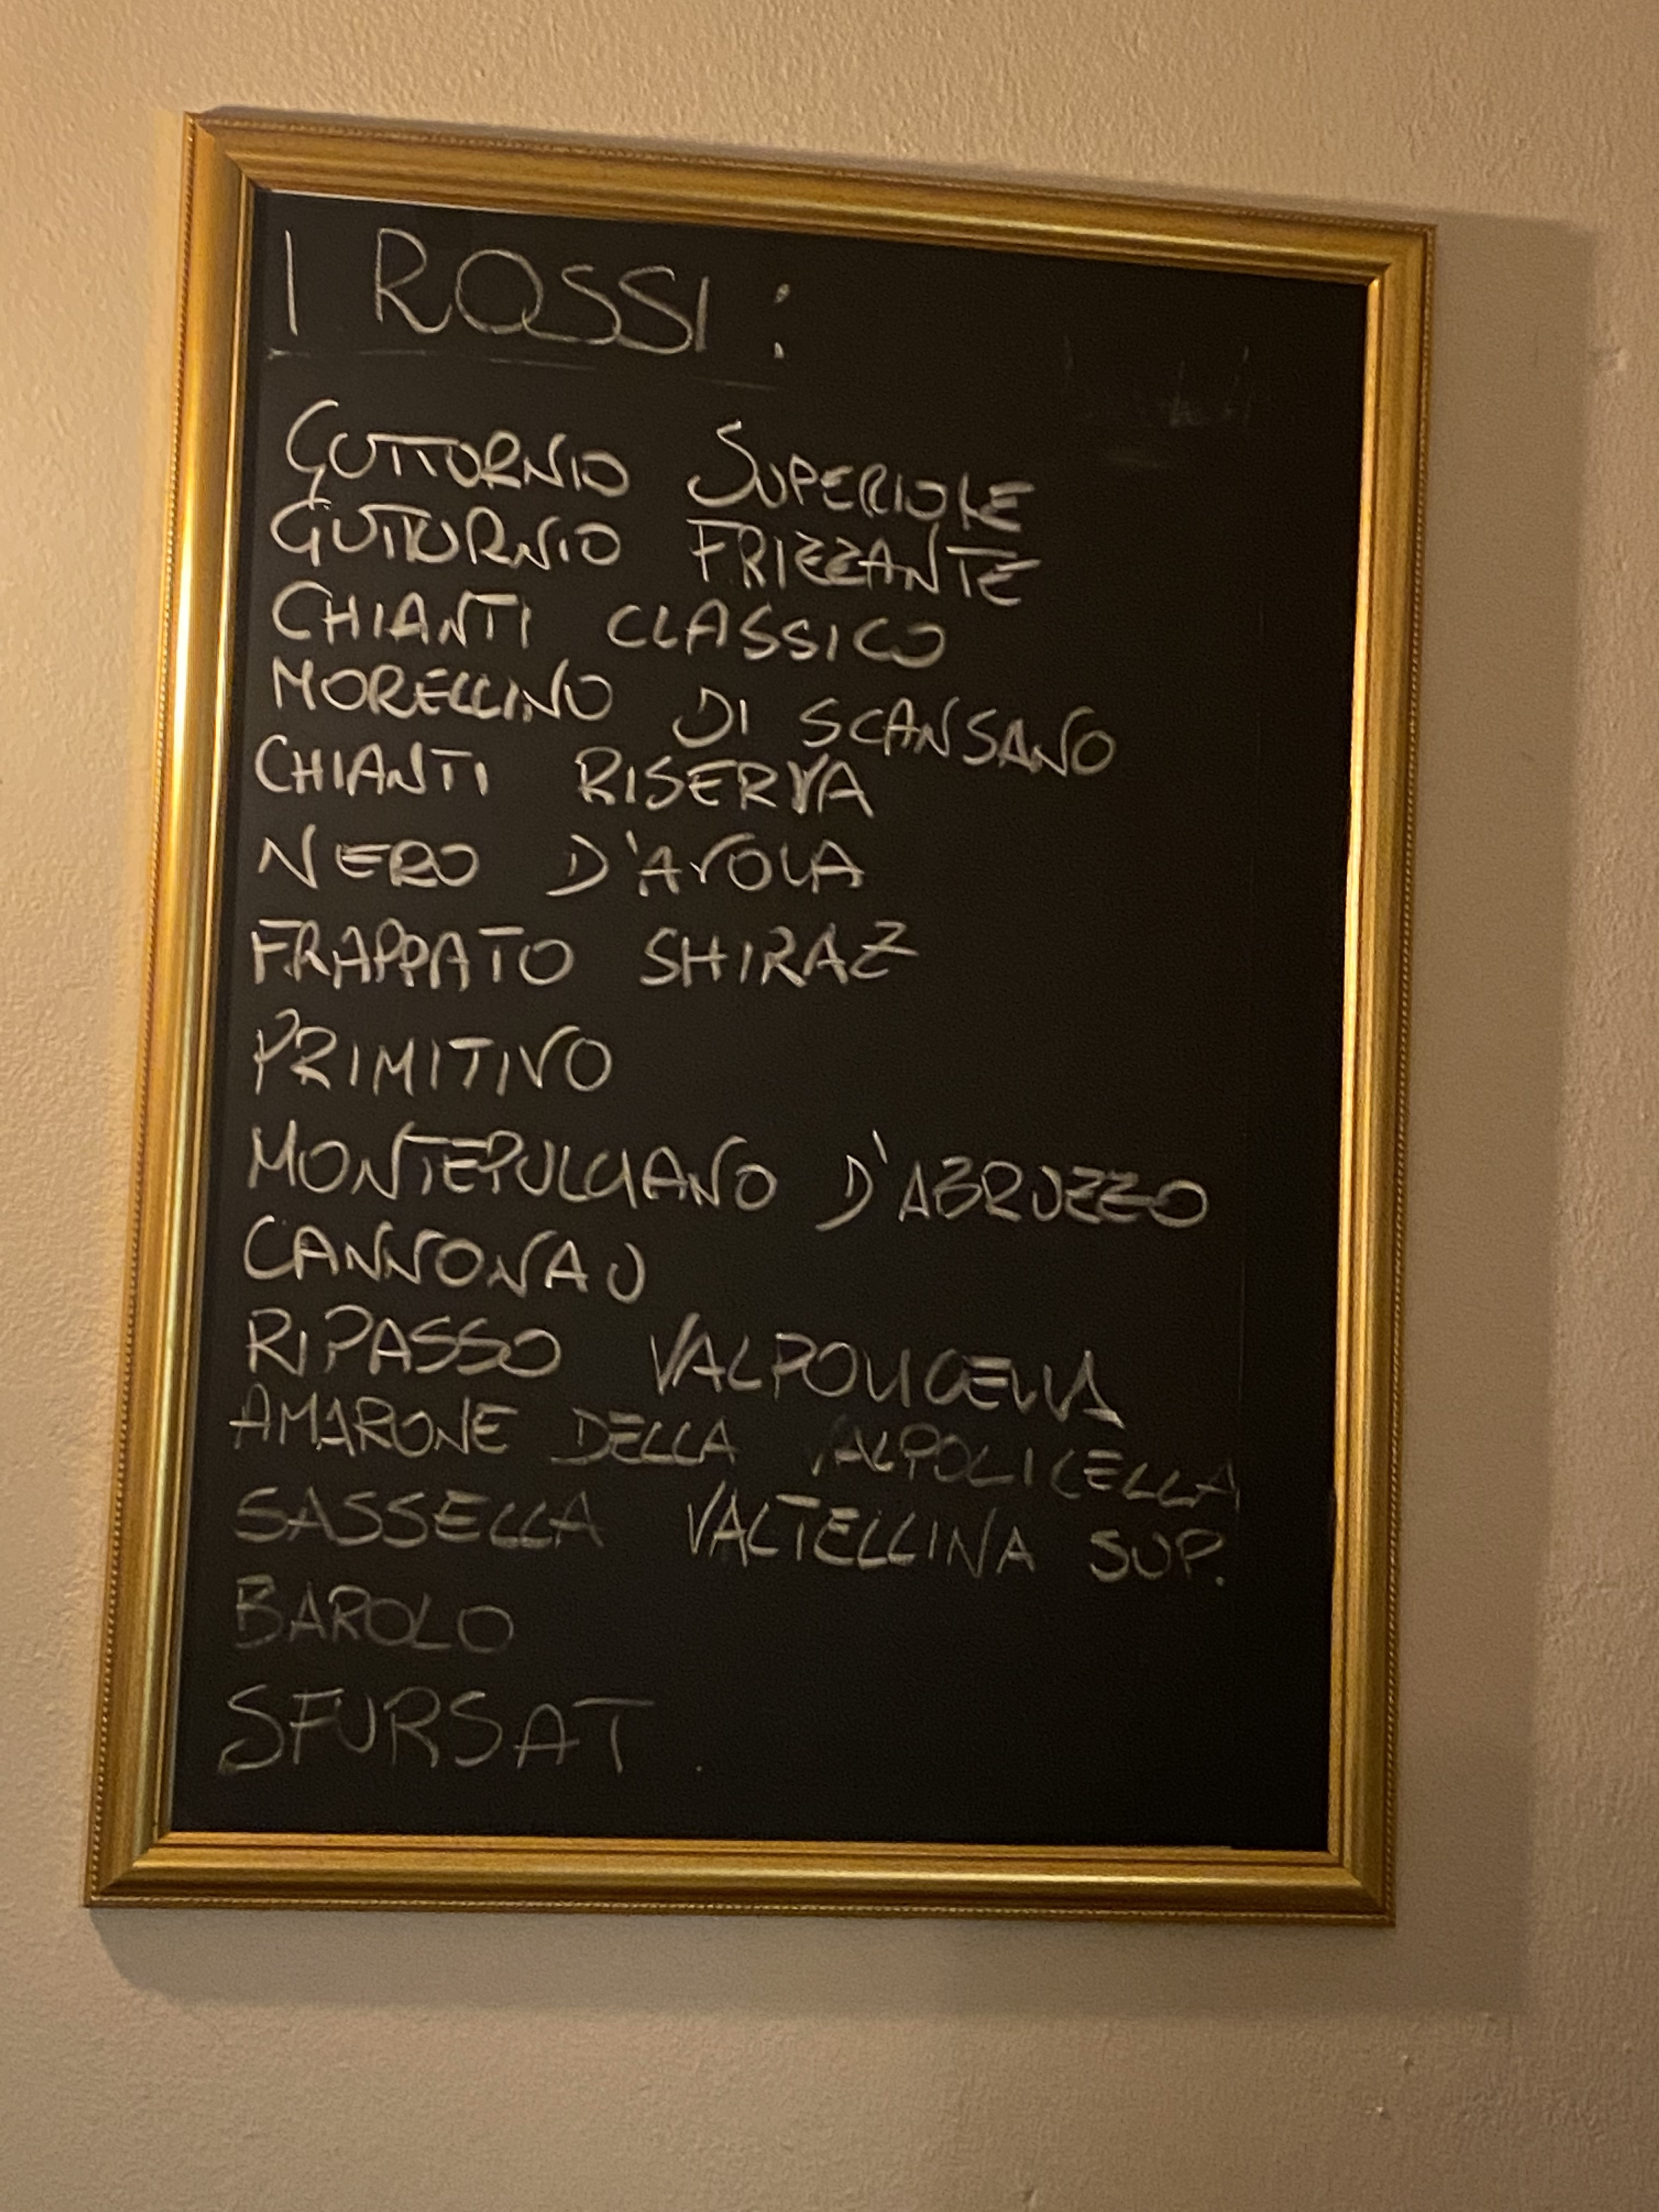 I ROSSI:
GUTTURNIO SUPERIORE
GUTTURNIO FRIZZANTE
CHIANTI CLASSICO
MORELLINO DI SCANSANO
CHIANTI RISERVA
NERO D'AVOLA
FRAPPATO SHIRAZ
PRIMITIVO
MONTEPULCIANO D'ABRUZZO
CANNONAU
RIPASSO VALPOLICELLA
AMARONE DELLA VALPOLICELLA
SASSELLA VALTELLINA SUP.
BAROLO
SFURSAT.